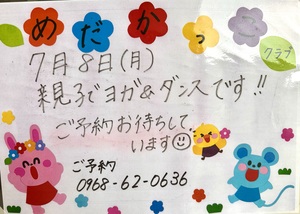 めだかっこ
クラブ
7月8日(月)
親子でヨガ&ダンスです!!
ご予約お待ちして
います
ご予約
0968-62-0636